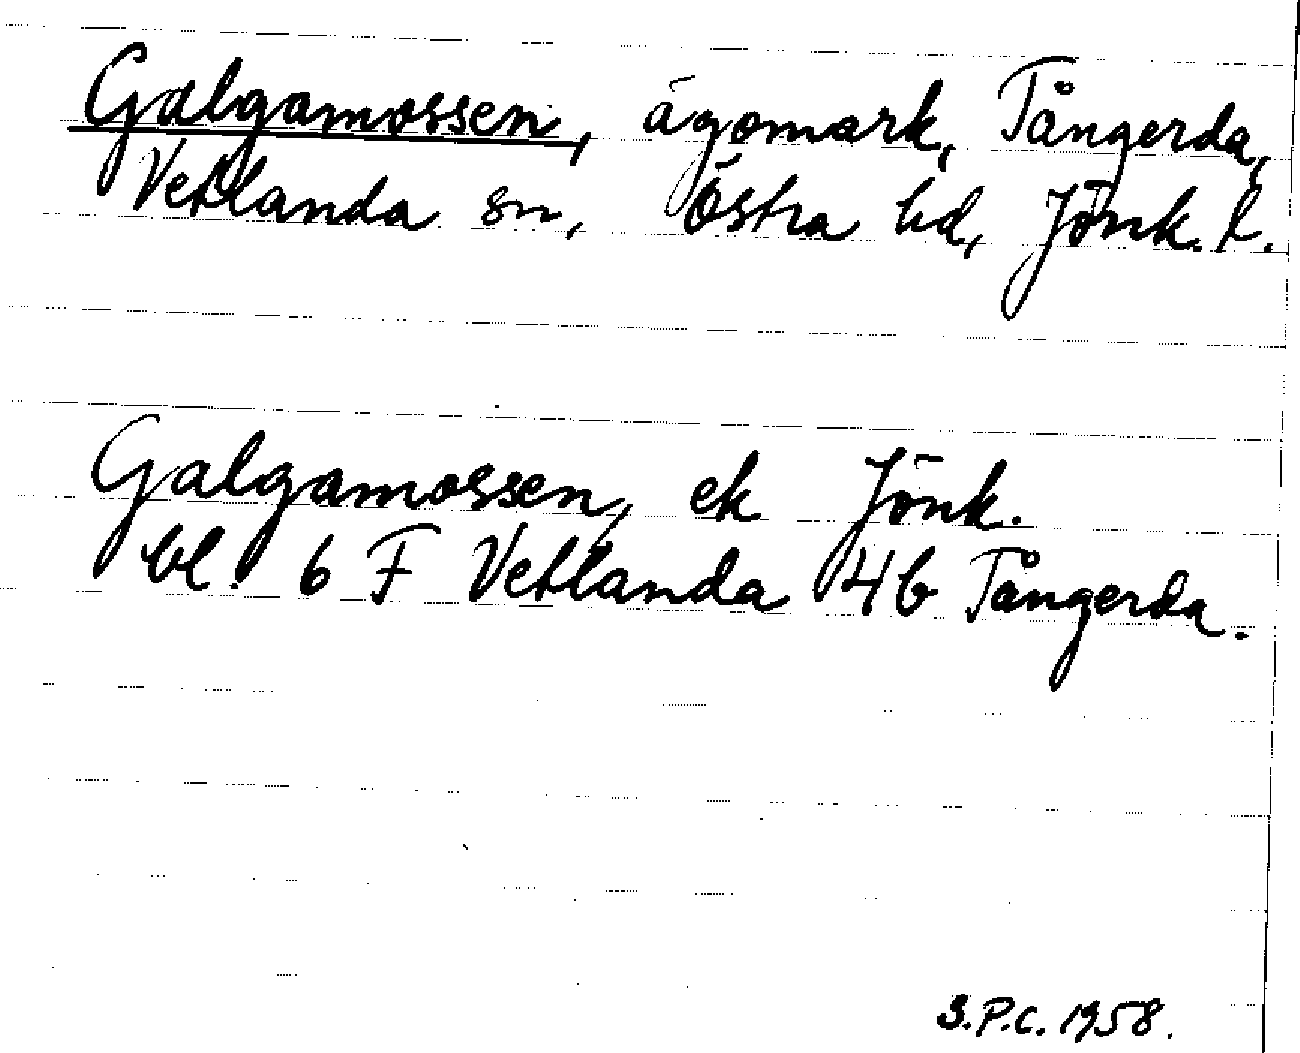 Galgamossen, ägomark, Tångerda,
Vetlanda sn, Östra hd, Jönk. l.
Galgamossen, ek Jönk.
bl. 6 F Vetlanda 4b Tångerda.
S.P.C. 1958.